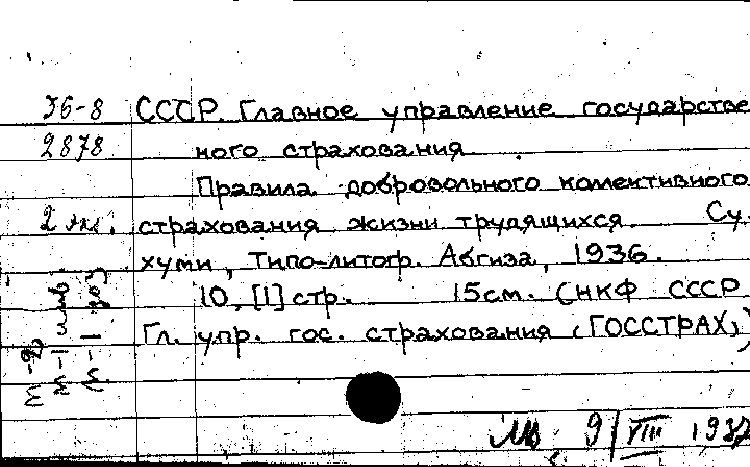 36-8 СССР. Главное управление государстве
2878 ного страхования
Правила добровольного коллективного
2 экз. страхования жизни трудящихся. Су
хуми, Типо-литогр. Абгиза, 1936.
10, [1] стр. 15см. (НКФ СССР
Гл. упр. гос. страхования (ГОССТРАХ))
9/VIII 1937